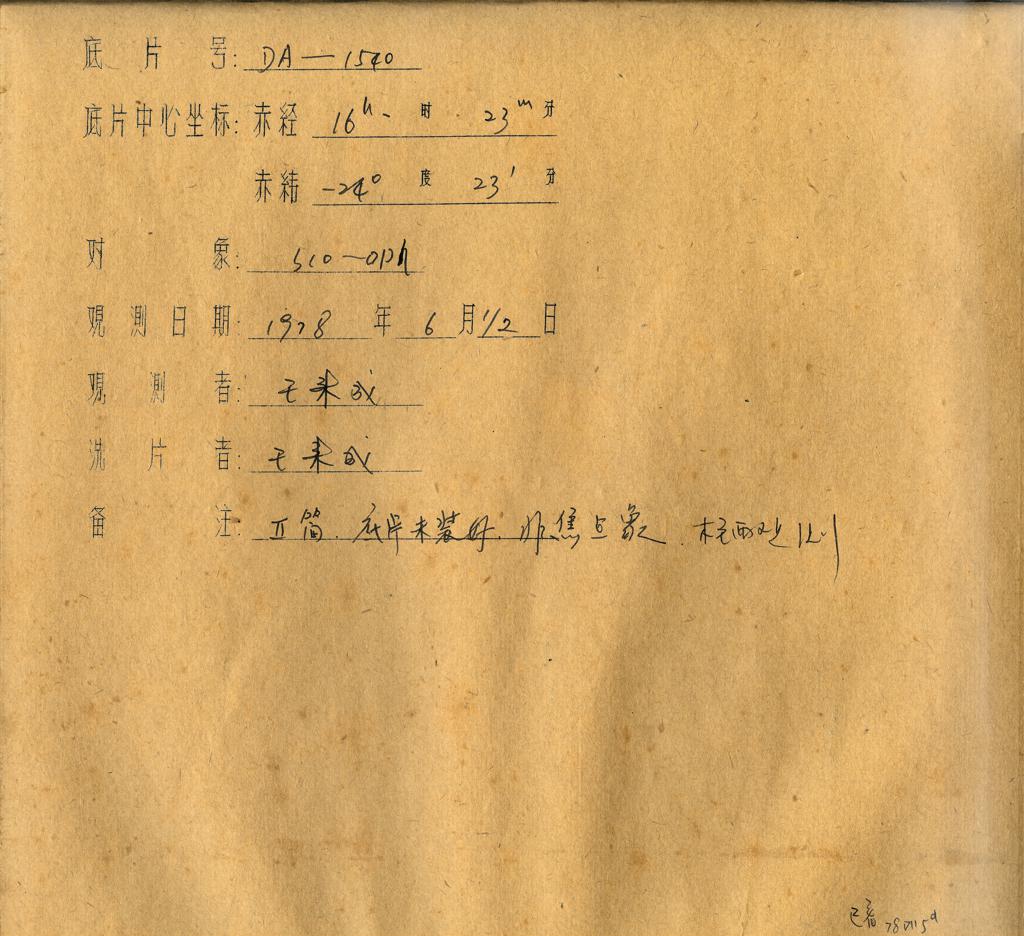 底片号: DA—1540
底片中心坐标: 赤経 16h 时 23m 分
赤緯 -24° 度 23' 分
对象: Sco-Oph
观測日期: 1978 年 6 月 1/2 日
观測者: 王来成
洗片者: 王来成
备注: II筒. 底片未装好. 非焦点象.
已看